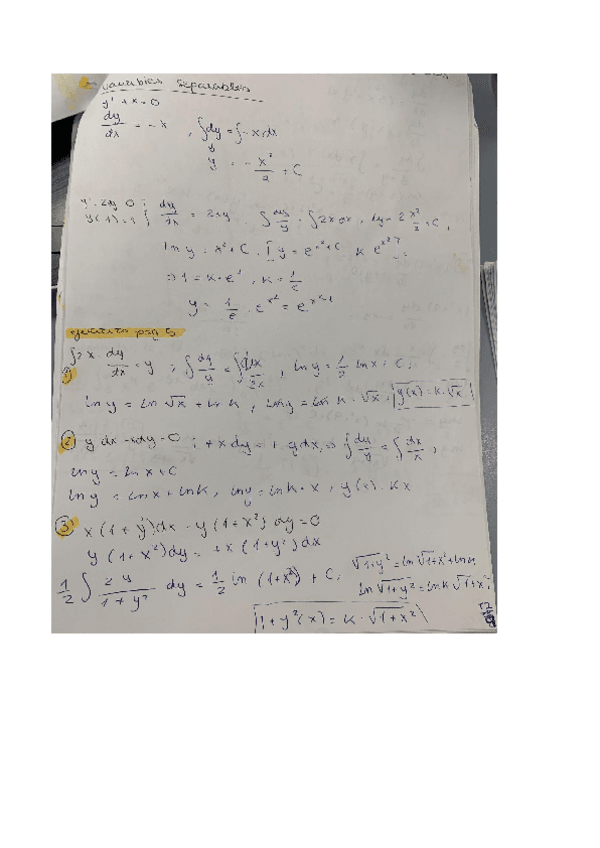 variables separables
y' + x = 0
dy/dx = -x , ∫dy = ∫-x dx
y = -x²/2 + C
y' - 2xy = 0 ;
y(1) = 1 } dy/dx = 2xy ∫dy/y = ∫2x dx , = 2 x²/2 + C ,
ln y = x² + C . y = e^(x²+C) k e^(x²)
⇒ 1 = k · e¹ , k = 1/e
y = 1/e · e^(x²) =
pag 5
1) 2x · dy/dx = y ; ∫dy/y = ∫dx/2x , ln y = 1/2 ln x + C ;
ln y = ln √x + ln k , ln y = ln k · √x , y(x) = k · √x
2) y dx - x dy = 0 ; + x dy = + y dx ⇒ ∫dy/y = ∫dx/x ,
ln y = ln x + C
ln y = ln x + ln k , ln y = ln k · x , y(x) = kx
3) x (1 + y²) dx - y (1 + x²) dy = 0
y (1 + x²) dy = + x (1 + y²) dx
1/2 ∫ 2y/(1 + y²) dy = 1/2 ln (1 + x²) + C ;
√1+y² = ln √1+x² + ln k
ln √1+y² = ln k √1+x²
1 + y²(x) = k · √1+x²